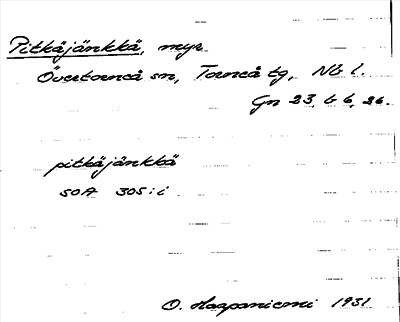 Pitkäjänkkä, myr
Övertorneå sn, Torneå tg, Nb l.
Gn 23, b 6, 26.
pitkäjänkkä
SOA 305:i
O. Haapaniemi 1931